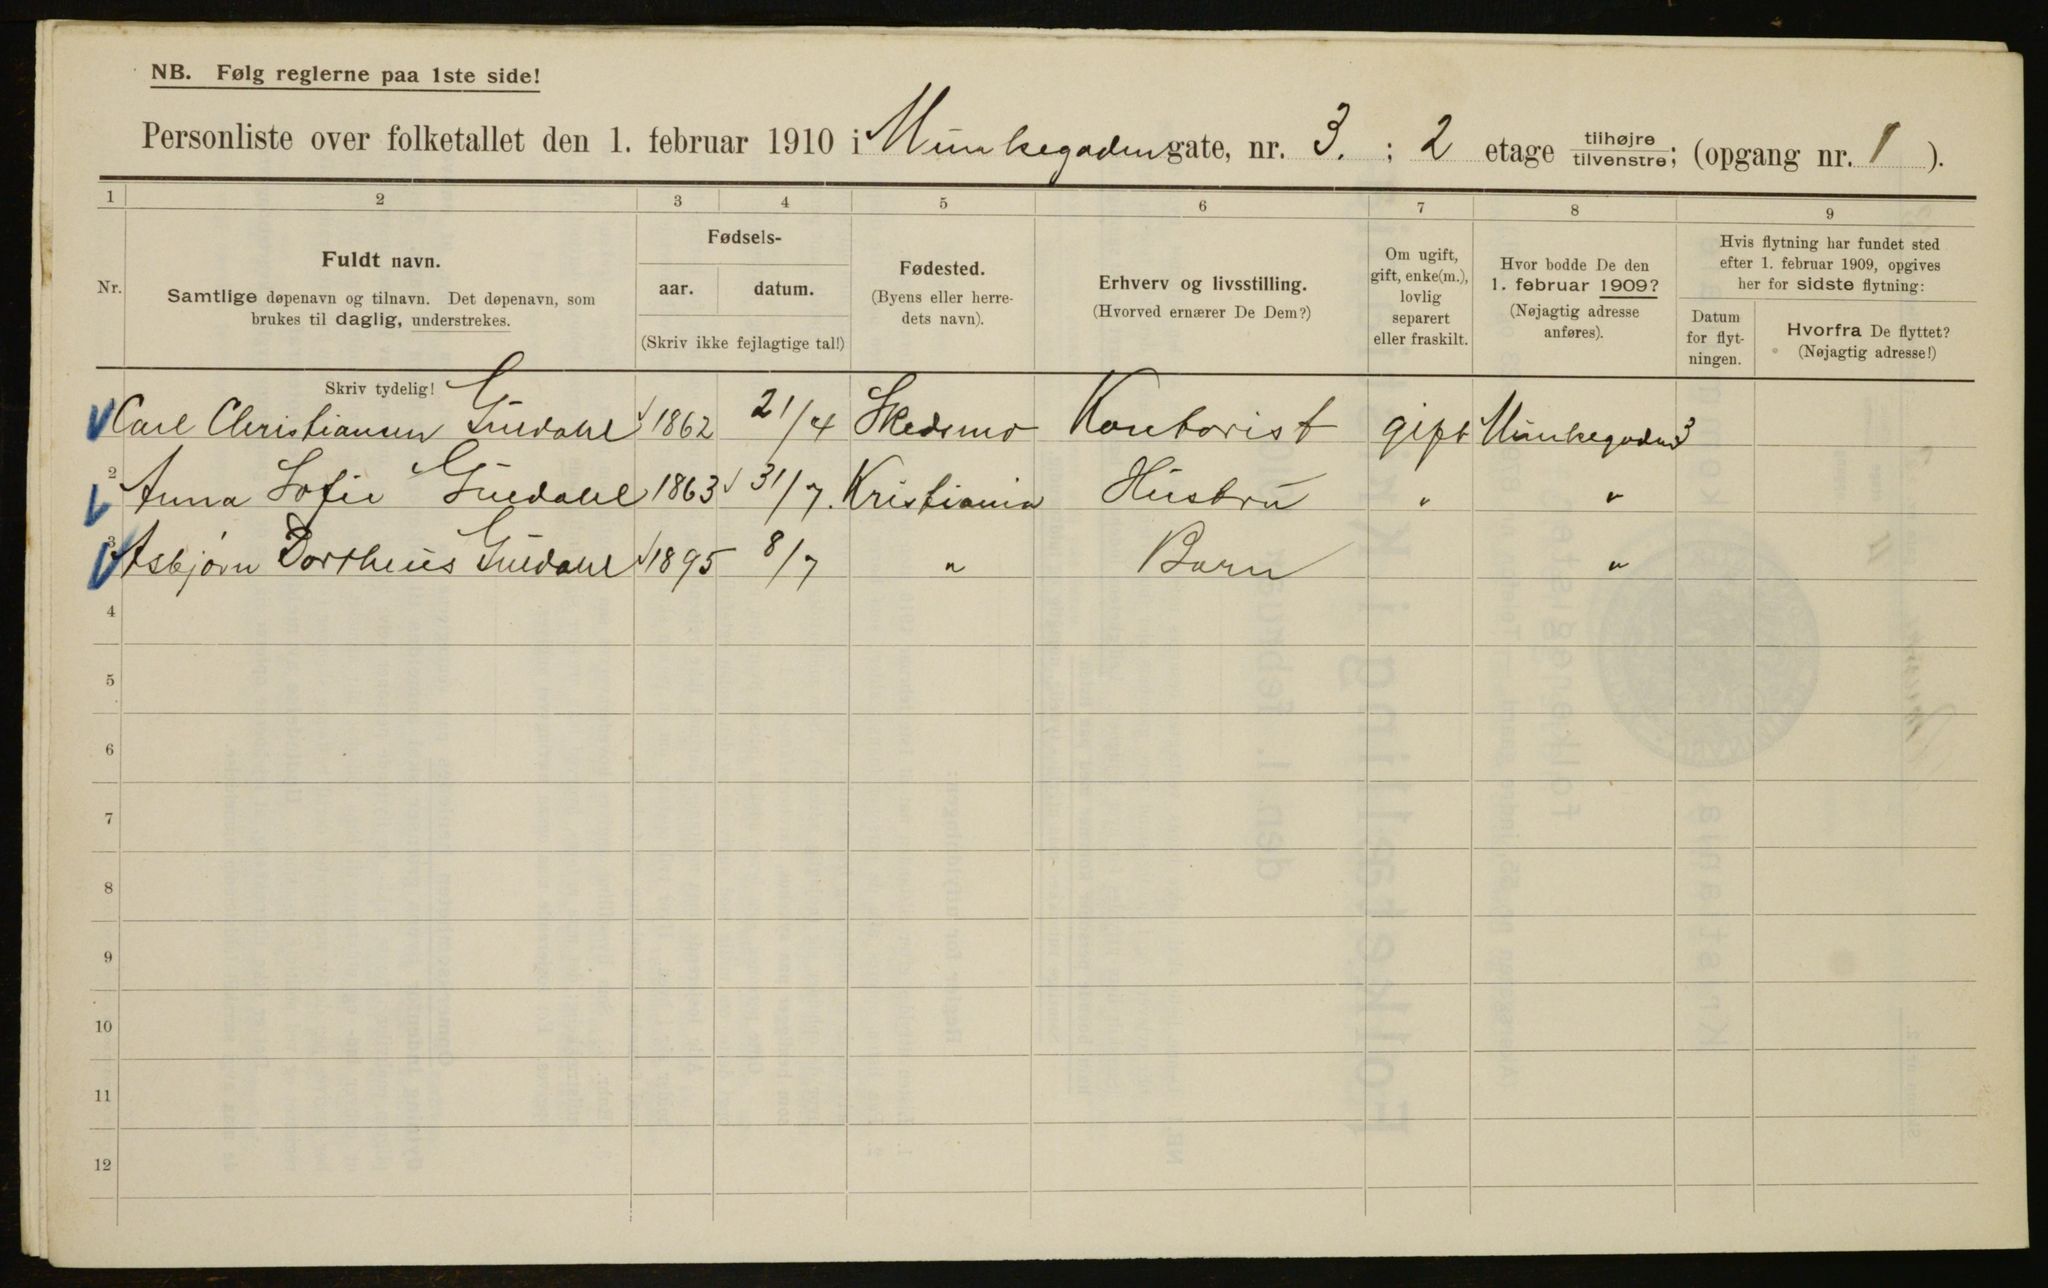 NB. Følg reglerne paa 1ste side!
Personliste over folketallet den 1. februar 1910 i Munkegaden gate, nr. 3. ; 2 etage tilhøjre tilvenstre; (opgang nr. 1 ).
1 2 3 4 5 6 7 8 9
Nr.
Fuldt navn.
Samtlige døpenavn og tilnavn. Det døpenavn, som
brukes til daglig, understrekes.
Skriv tydelig!
Fødsels-
aar. datum.
(Skriv ikke fejlagtige tal!)
Fødested.
(Byens eller herre-
dets navn).
Erhverv og livsstilling.
(Hvorved ernærer De Dem?)
Om ugift,
gift, enke(m.),
lovlig
separert
eller fraskilt.
Hvor bodde De den
1. februar 1909?
(Nøjagtig adresse
anføres).
Hvis flytning har fundet sted
efter 1. februar 1909, opgives
her for sidste flytning:
Datum
for flyt-
ningen.
Hvorfra De flyttet?
(Nøjagtig adresse!)
Carl Christiansen 1862 21/4 Skedsmo Kontorist gift Munkegaden 3
2 Anna Sofie 1863 31/7. Kristiania Hustru " "
3 Asbjørn Dortheus 1895 8/7 " Barn "
4
5
6
7
8
9
10
11
12